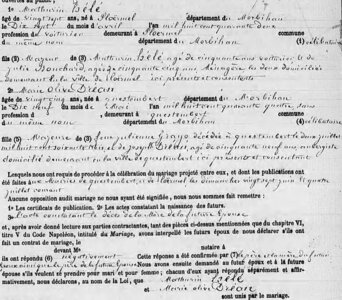 1o Mathurin Télé
âgé de vingt cinq ans, né à Ploërmel département du Morbihan
Le dix Sept du mois d'avril l'an mil huit cent quarante deux
profession de voiturier demeurant à Ploërmel
du même nom département du Morbihan (1) célibataire
fils (2) Majeur de (3) Mathurin Télé âgé de cinquante ans voiturier et de
julie Bouchard, âgée de cinquante cinq ans Ménagère les deux domiciliés
demeurant en la ville de Ploërmel ici présents et consentants
2o Marie Olive Dréan
âgée de vingt cinq ans, née à Questembert département du Morbihan
Le dix du mois de Mai mil huit cent quarante
profession demeurant à Questembert
du même nom département du Morbihan (4) célibataire
fille (5) Majeure de (3) feue julienne décédée à Questembert le deux juillet
mil huit cent soixante et de joseph Dréan, âgé de cinquante neuf ans aubergiste
domicilié demeurant en la ville de Questembert ici présent et consentant
Lesquels nous ont requis de procéder à la célébration du mariage projeté entre eux, et dont les publications ont
été faites aux Mairies de Questembert, et de Ploërmel les dimanches vingt sept juin et quatre
juillet suivant
Aucune opposition audit mariage ne nous ayant été signifiée, nous nous sommes fait remettre :
1o Les certificats de publication. 2o Les actes constatant la naissance des futurs.
3o L'acte constatant le décès de la Mère de la future Epouse
et, après avoir donné lecture aux parties contractant, tant des pièces ci-dessus mentionnées que du chapitre VI,
titre V du Code Napoléon, intitulé du Mariage, avons interpellé les futurs époux de nous déclarer s'ils ont
fait un contrat de mariage, le
devant Me notaire à
ils ont répondu (6) négativement Cette réponse a été confirmée par (7)
Nous avons ensuite demandé au futur époux et à la future
épouse s'ils veulent se prendre pour mari et pour femme ; chacun d'eux ayant répondu séparément et affir-
mativement, nous déclarons, au nom de la Loi, que Mathurin Télé
et Marie olive Dréan
sont unis par le mariage.